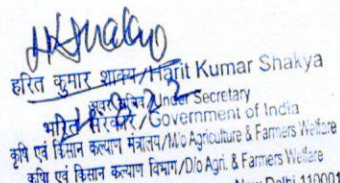 हरित कुमार शाक्य/Harit Kumar Shakya
अवर सचिव/Under Secretary
भारत सरकार/Government of India
कृषि एवं किसान कल्याण मंत्रालय/M/o Agriculture & Farmers Welfare
कृषि एवं किसान कल्याण विभाग/D/o Agri. & Farmers Welfare
New Delhi 110001